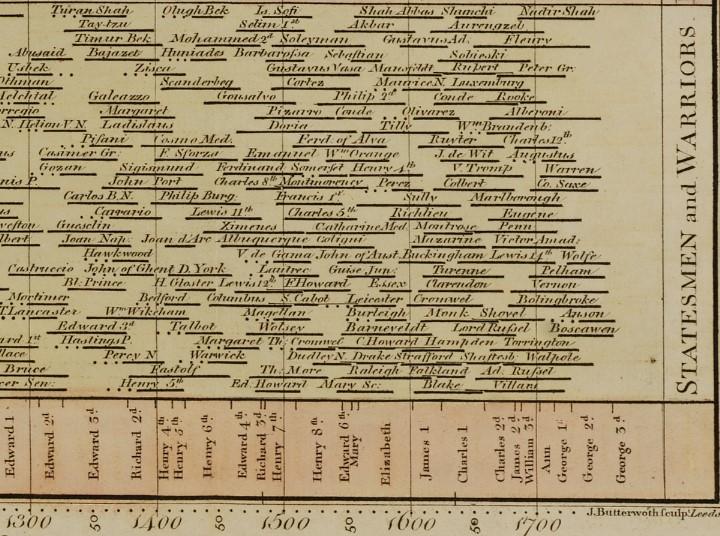 Turan Shah Olugh Bek Is. Sofi Shah Abbas Shanchi Nadir Shah
Tay-tzu Selim 1st Akbar Aurengzeb
Timur Bek Mohammed 2d Soleyman Gustavus Ad. Fleury
Abusaid Bajazet Huniades Barbarossa Sebastian Sobieski
Usbek Zisca Gustavus Vasa Mansfeldt Rupert Peter Gr:
Othman Scanderbeg Cortez Maurice N. Luxemburg
Melchtal Galeazzo Gonsalvo Philip 2d Conde Rooke
rregio Margaret Pizarro Conde Olivarez Alberoni
N. Helion V.N. Ladislaus Doria Tilly Wm Brandenb:
Pisani Cosmo Med. Ferd. of Alva Ruyter Charles 12th
us Casimer Gr: F. Sforza Emanuel Wm Orange J. de Wit Augustus
Gozan Sigismund Ferdinand Somerset Henry 4th V. Tromp Warren
nis P. John Port Charles 8th Montmorency Perez Colbert Co. Saxe
Carlos B.N. Philip Burg. Francis 1st Sully Marlborough
us Carrario Lewis 11th Charles 5th Richlieu Eugene
veston Guesclin Ximenes Catharine Med. Montrose Penn
lbert Joan Nap: Joan d'Arc Albuquerque Coligni Mazarine Victor Amad:
Hawkwood V de Gama John of Aust. Buckingham Lewis 14th Wolfe
Castruccio John of Ghent D. York Lautrec Guise Jun: Turenne Pelham
Bl: Prince H. Gloster Lewis 12th E Howard Essex Clarendon Vernon
Mortimer Bedford Columbus S. Cabot Leicester Cromwel Bolingbroke
T. Lancaster Wm Wikeham Magellan Burleigh Monk Shovel Anson
Edward 3d Talbot Wolsey Barneveldt Lord Russel Boscawen
ard 1st Hastings P. Margaret Th: Cromwel C. Howard Hampden Torrington
llace Percy N. Warwick Dudley N. Drake Strafford Shaftesb: Walpole
Bruce Fastolf Th: More Raleigh Falkland Ad. Russel
cer Sen: Henry 5th Ed. Howard Mary Sc: Blake Villars
STATESMEN and WARRIORS
Edward 1
Edward 2d
Edward 3d
Richard 2d
Henry 4th
Henry 5th
Henry 6th
Edward 4th
Richard 3d
Henry 7th
Henry 8th
Edward 6th
Mary
Elizabeth
James 1
Charles 1
Charles 2d
James 2d
William 3d
Ann
George 1st
George 2d
George 3d
1300 50 1400 50 1500 50 1600 50 1700
J. Butterworth sculp. Leeds